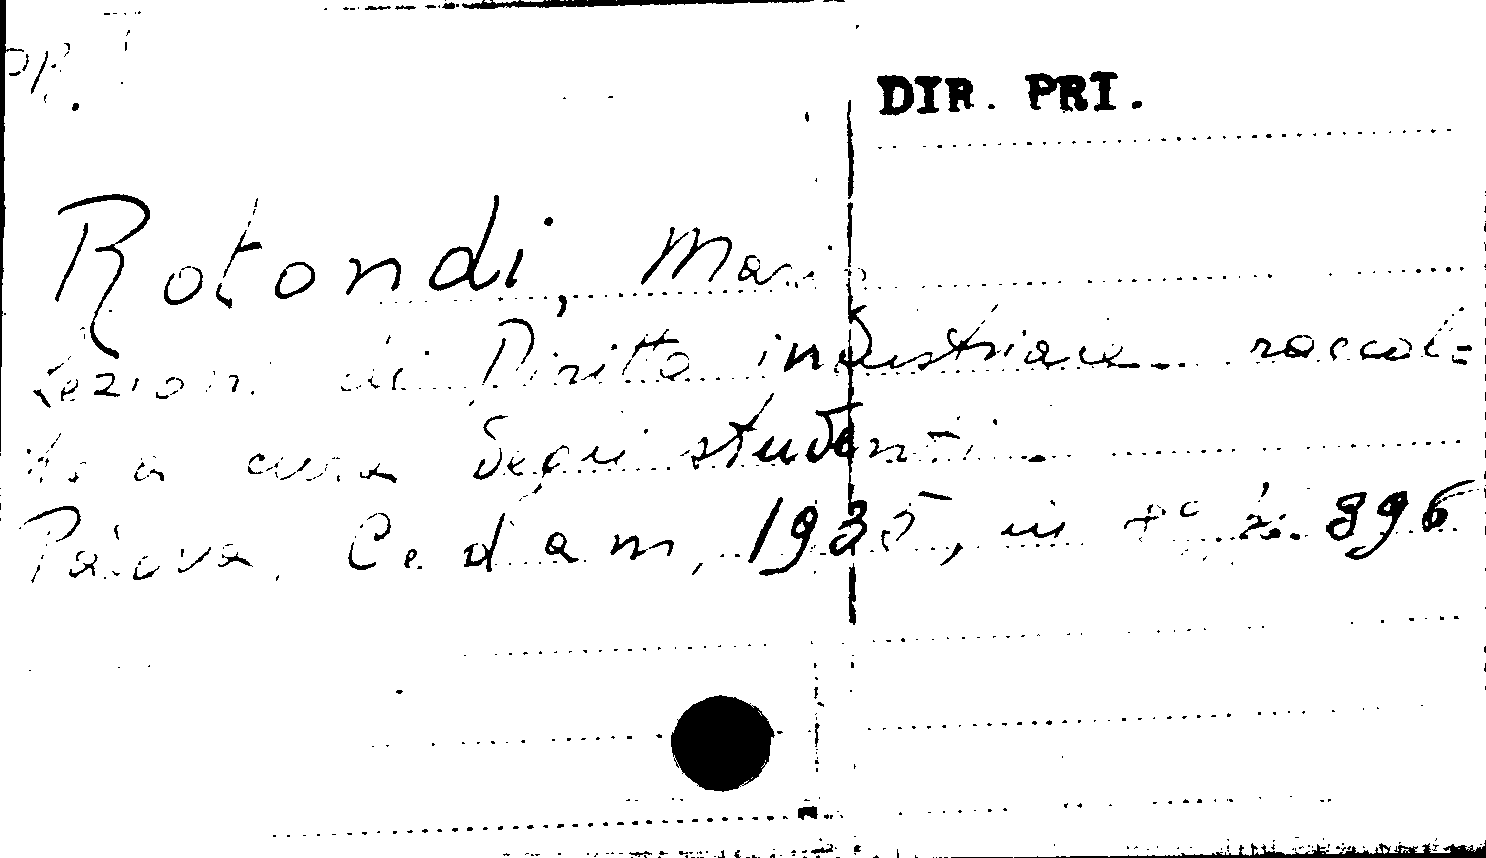 DIR. PRI.
Rotondi, Mario
Lezioni di Diritto industriale raccol=
te a cura degli studenti.
Padova, Cedam, 1935, in 8° p. 396